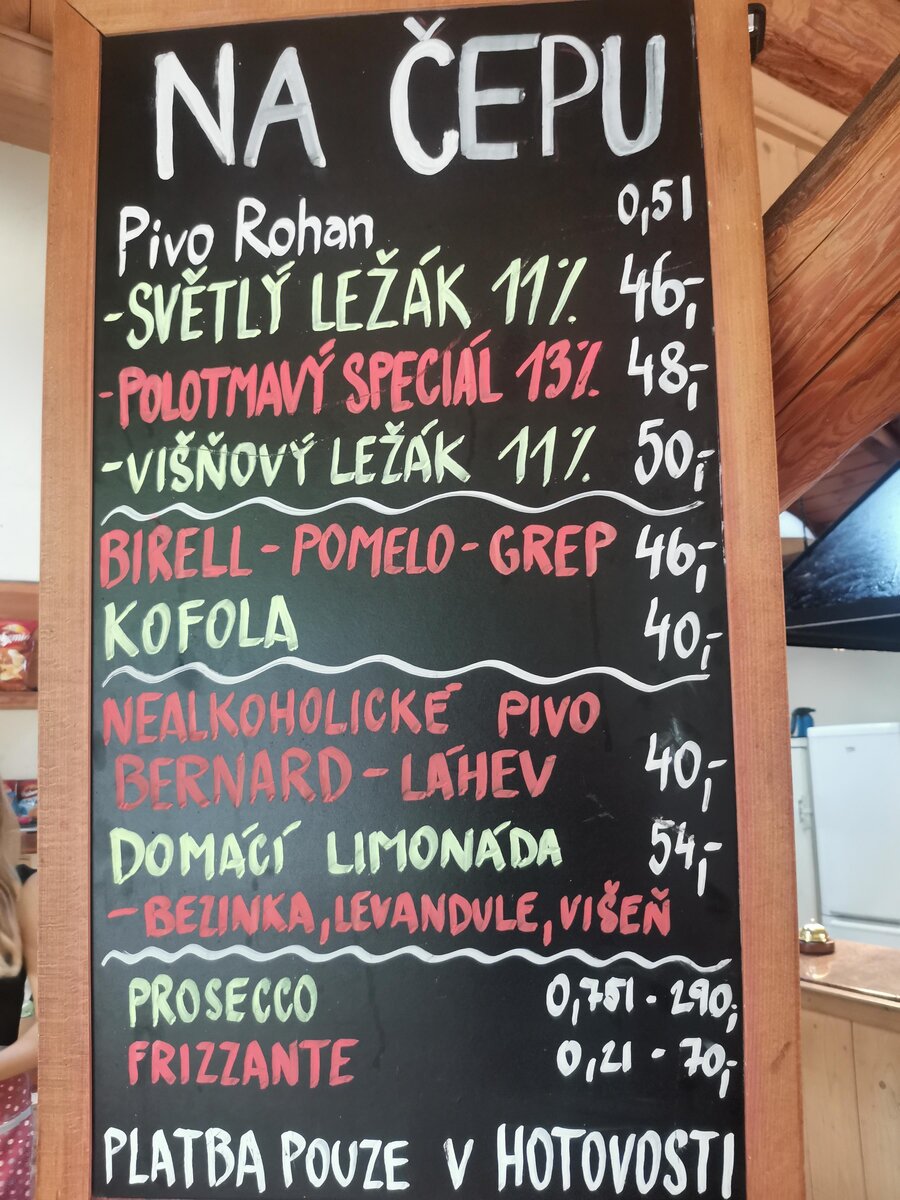 NA ČEPU
Pivo Rohan 0,5l
-SVĚTLÝ LEŽÁK 11% 46,-
-POLOTMAVÝ SPECIÁL 13% 48,-
-VIŠŇOVÝ LEŽÁK 11% 50,-
BIRELL-POMELO-GREP 46,-
KOFOLA 40,-
NEALKOHOLICKÉ PIVO
BERNARD-LÁHEV 40,-
DOMÁCÍ LIMONÁDA 54,-
-BEZINKA,LEVANDULE,VIŠEŇ
PROSECCO 0,75l - 290,-
FRIZZANTE 0,2l - 70,-
PLATBA POUZE V HOTOVOSTI